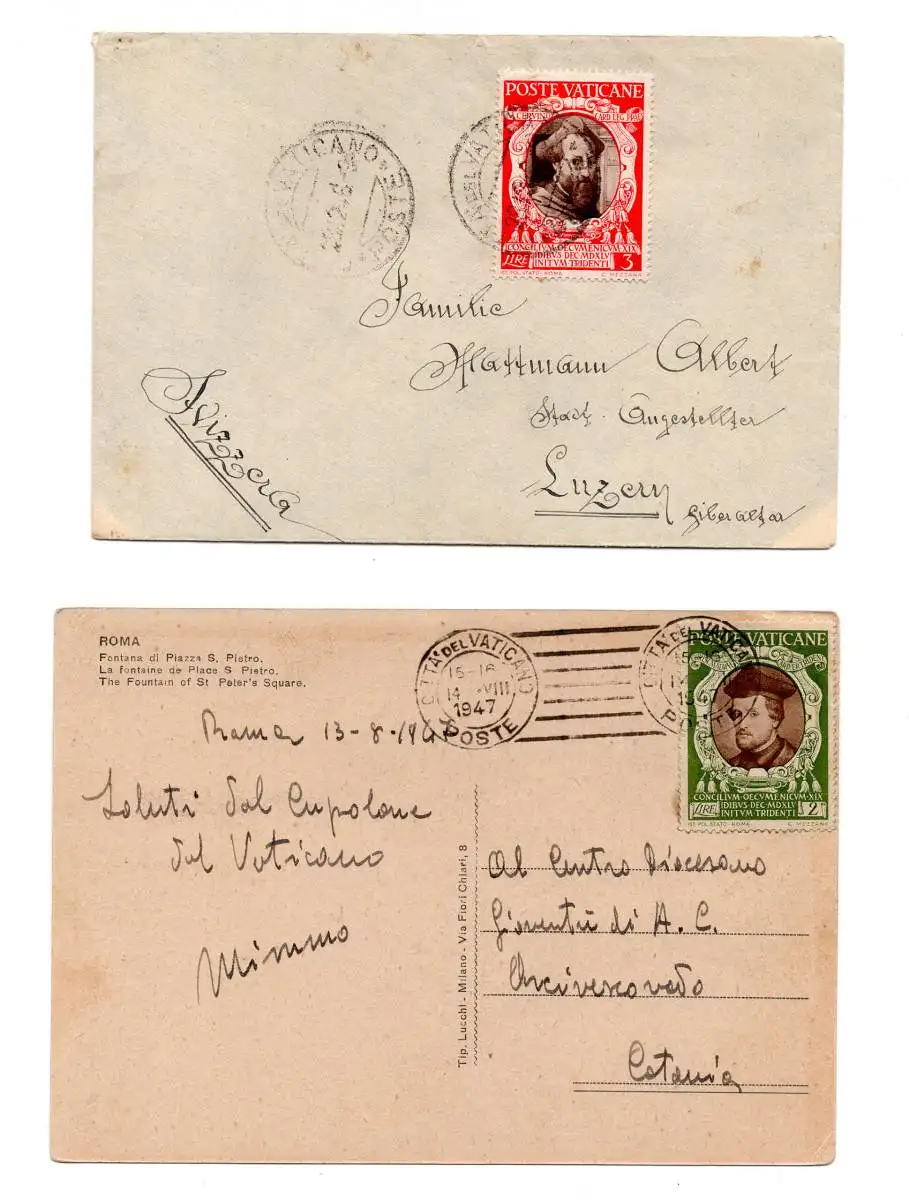 POSTE VATICANE
CARD. LEG. PRAE
CONCILIVM·OECVMENICVM·XIX
IDIBVS·DEC·MDXLV
INITVM·TRIDENTI
LIRE 3
IST. POL. STATO-ROMA C. MEZZANA
VATICANO
POSTE
DEL VAT
Familie
Mattmann Albert
Stadt. Angestellter
Luzern
Svizzera
ROMA
Fontana di Piazza S. Pietro.
La fontaine de Place S Pietro.
The Fountain of St Peter's Square.
CITTA' DEL VATICANO
15-16
14 .VIII
1947
POSTE
CITTA' DEL VATICANO
POSTE
POSTE VATICANE
CONCILIVM·OECVMENICVM·XIX
IDIBVS·DEC·MDXLV
INITVM·TRIDENTI
LIRE 2
IST. POL. STATO-ROMA C. MEZZANA
Roma 13-8-1947
Saluti dal Cupolone
dal Vaticano
Mimmo
Tip. Lucchi - Milano - Via Fiori Chiari, 8
Al Centro Diocesano
Gioventù di A. C.
Arcivescovado
Catania